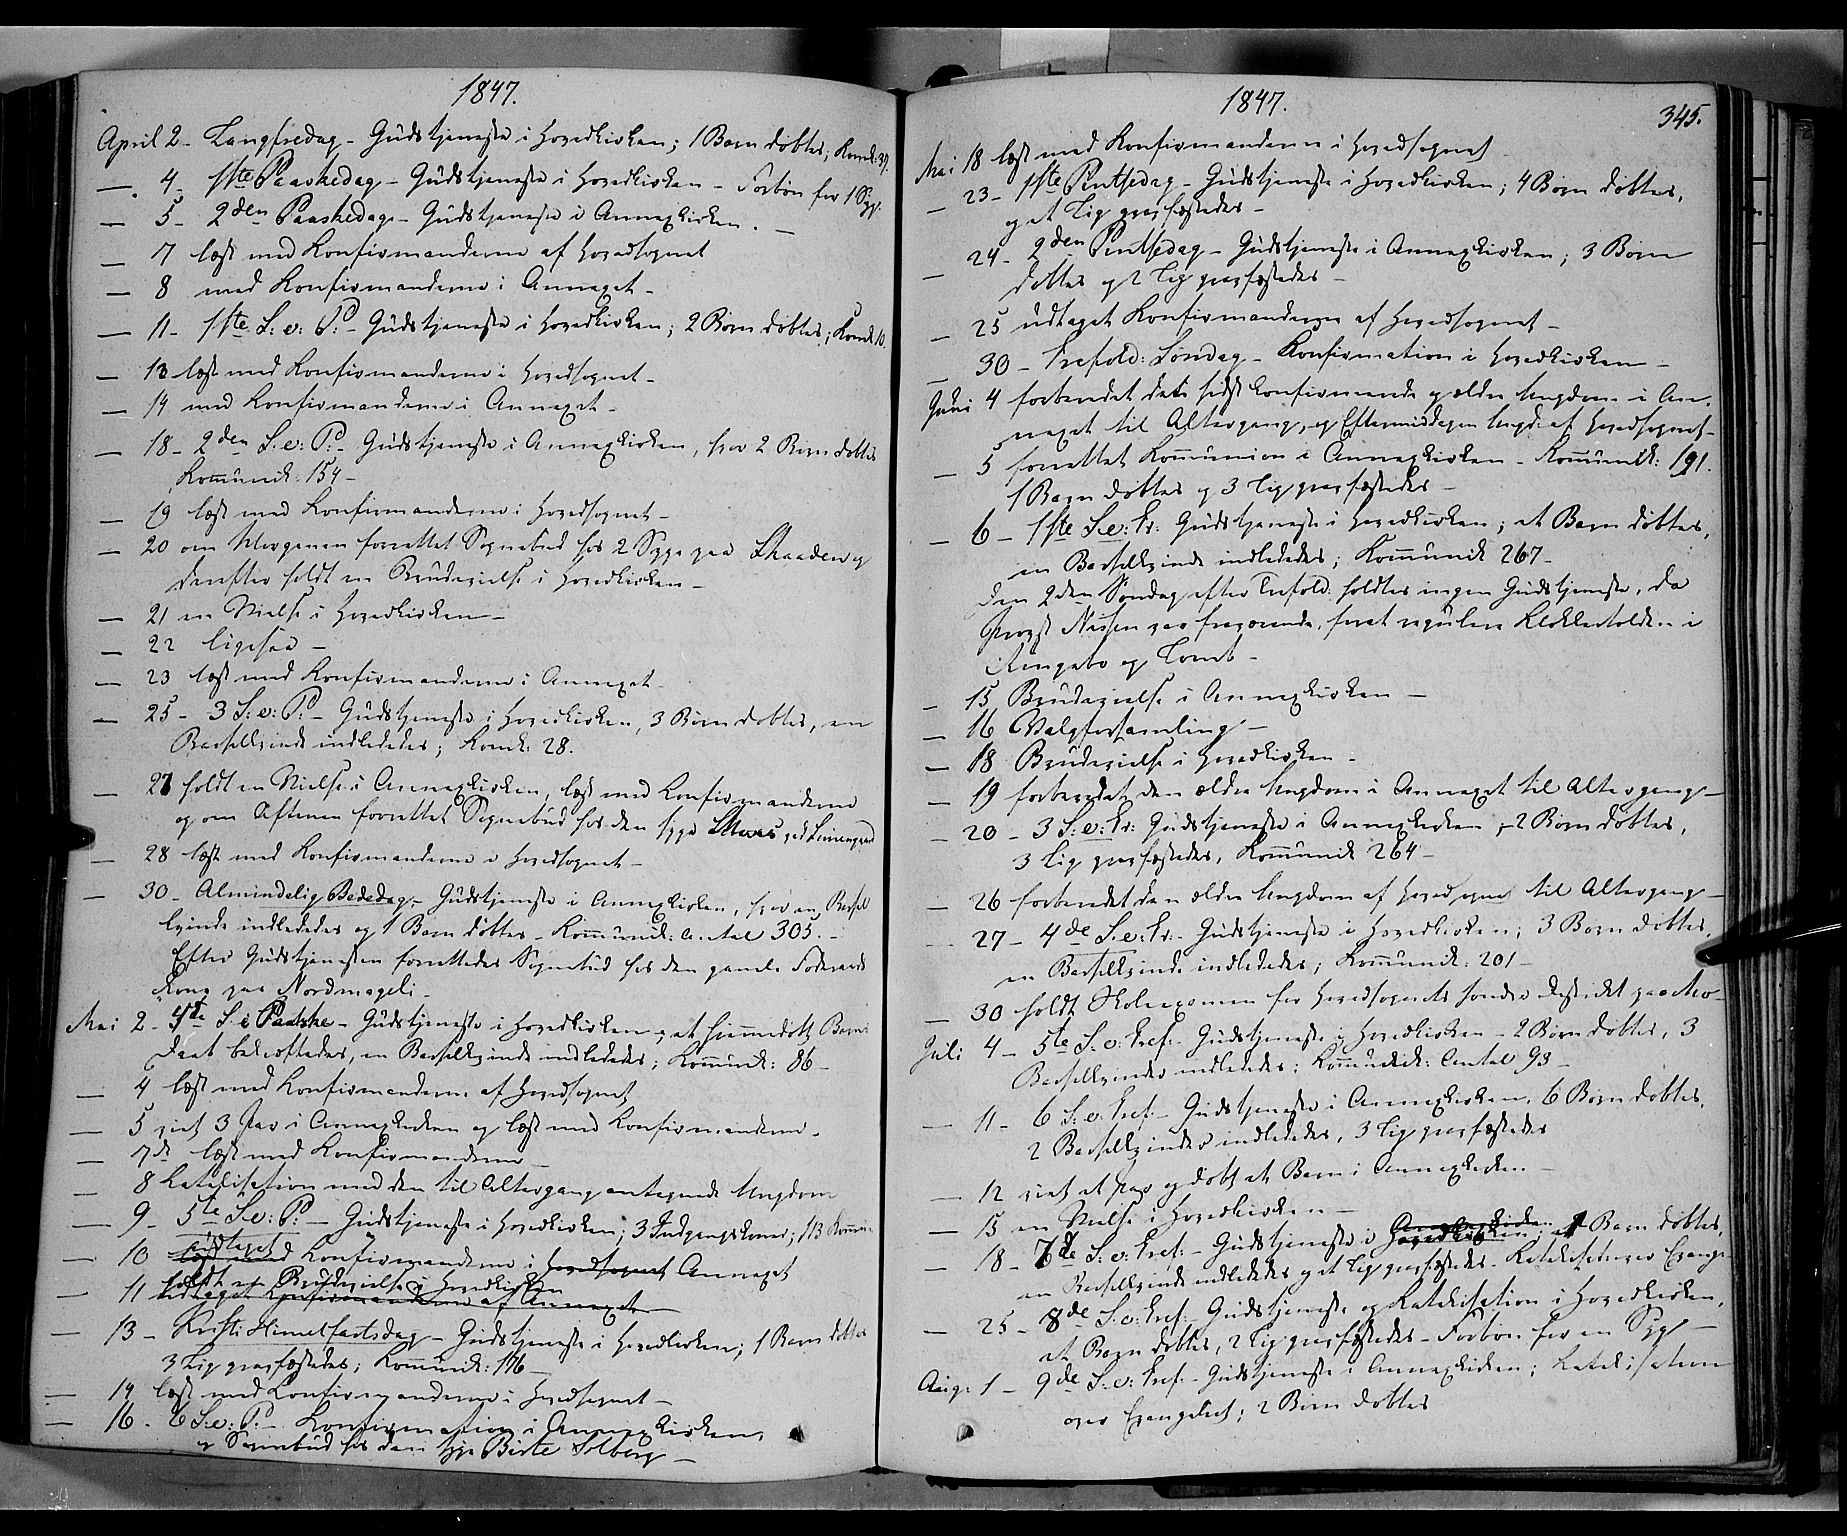 1847.
April 2 - Langfredag - Gudstjeneste i Hovedkirken; 1 Barn døbtes; Komd: 39.
— 4 - 1ste Paaskedag - Gudstjeneste i Hovedkirken - Forbøn for 1 Syg.
— 5 - 2den Paaskedag - Gudstjeneste i Annexkirken. —
— 7 læst med Konfirmanderne af Hovedsognet
— 8 med Konfirmanderne i Annexet -
— 11 - 1ste S. e: P: - Gudstjeneste i Hovedkirken; 2 Børn døbtes; Komd: 10.
— 13 læst med Konfirmanderne i Hovedsognet -
— 14 med Konfirmanderne i Annexet -
— 18 - 2den S. e: P: - Gudstjeneste i Annexkirken, hvor 2 Børn døbtes
Kommunik: 154 -
— 19 læst med Konfirmanderne i Hovedsognet -
— 20 om Morgenen forrettet Sognebud hos 2 Syge paa og
derefter holdt en Brudevielse i Hovedkirken -
— 21 en Vielse i Hovedkirken -
— 22 ligesaa -
— 23 læst med Konfirmanderne i Annexet -
— 25 - 3 S. e: P: - Gudstjeneste i Hovedkirken, 3 Børn døbtes, en
Barselkvinde indlededes; Komd: 28.
— 27 holdt en Vielse i Annexkirken, læst med Konfirmanderne
og om Aftenen forrettet Sognebud hos den syge
— 28 læst med Konfirmanderne i Hovedsognet -
— 30 - Almindelig Bededag - Gudstjeneste i Annexkirken, hvor en Barsel
kvinde indlededes og 1 Barn døbtes - Kommunik: Antal 305. -
Efter Gudstjenesten forrettedes Sognebud hos den gamle Føderaads
Kone paa Nordmageli -
Mai 2 - 4de S. e Paaske - Gudstjeneste i Hovedkirken - et hjemmedøbt Barns
Daab bekræftedes, en Barselkvinde indlededes; Kommunik: 86 -
— 4 læst med Konfirmanderne af Hovedsognet
— 5 viet 3 Par i Annexkirken og læst med Konfirmanderne -
— 7de læst med Konfirmanderne -
— 8 Katekisation med den til Altergang antegnede Ungdom
— 9 - 5te S. e: P: - Gudstjeneste i Hovedkirken; 3 Indgangskoner; 113 Kommun
— 10 udtaget Konfirmanderne i Hovedsognet Annexet
— 11 holdt en Brudevielse i Hovedkirken
udtaget Konfirmanderne af Annexet
— 13 - Kristi Himmelfartsdag - Gudstjeneste i Hovedkirken; 1 Barn døbtes
3 Lig gravfæstedes; Kommunik: 176 -
— 14 læst med Konfirmanderne i Hovedsognet -
— 16 - 6 S. e: P: - Konfirmation i Annexkirken,
og Sognebud hos den syge Birte Solberg -
1847.
345.
Mai 18 læst med Konfirmanderne i Hovedsognet
— 23 - 1ste Pintsedag - Gudstjeneste i Hovedkirken; 4 Børn døbtes,
og et Lig gravfæstedes -
— 24 - 2den Pintsedag - Gudstjeneste i Annexkirken; 3 Børn
døbtes og 2 Lig gravfæstedes -
— 25 udtaget Konfirmanderne af Hovedsognet -
— 30 - Trefold: Søndag - Konfirmation i Hovedkirken -
Juni 4 forberedet den sidst konfirmerede og ældre Ungdom i An-
nexet til Altergang, og Eftermiddagen Ungd: af Hovedsognet -
— 5 forrettet Kommunion i Annexkirken - Kommunik: 191.
1 Barn døbtes og 3 Lig gravfæstedes -
— 6 - 1ste S. e: Tr: Gudstjeneste i Hovedkirken; et Barn døbtes,
en Barselkvinde indlededes; Kommunik 267 -
Den 2den Søndag efter Trefold: holdtes ingen Gudstjeneste, da
Provst Nissen var fraværende, for at regulere i
Ringebo og
— 15 Brudevielse i Annexkirken —
— 16 Valgforsamling -
— 18 Brudevielse i Hovedkirken -
— 19 forberedet den ældre Ungdom i Annexet til Altergang -
— 20 - 3 S. e: Tr: Gudstjeneste i Annexkirken; 2 Børn døbtes,
3 Lig gravfæstedes, Kommunik 264 -
— 26 forberedet den ældre Ungdom af Hovedsognet til Altergang -
— 27 - 4de S. e: Tr: - Gudstjeneste i Hovedkirken; 3 Børn døbtes,
en Barselkvinde indlededes; Kommunik: 201 -
— 30 holdt Skoleexamen for Hovedsognets søndre Distrikt paa Mo -
Juli 4 - 5te S. e: Tref: - Gudstjeneste i Hovedkirken - 2 Børn døbtes, 3
Barselkvinder indlededes; Kommunik: Antal 93 -
— 11 - 6 S. e: Tref: - Gudstjeneste i Annexkirken. 6 Børn døbtes,
2 Barselkvinder indlededes, 3 Lig gravfæstedes
— 12 viet et Par og døbt et Barn i Annexkirken -
— 15 en Vielse i Hovedkirken -
— 18 - 7de S. e: Tref: - Gudstjeneste i Annexkirken Hovedkirken, 1 Barn døbtes,
en Barselkvinde indlededes og et Lig gravfæstedes - Katekisation over Evang:
— 25 - 8de S. e: Tref: Gudstjeneste og Katekisation i Hovedkirken,
et Barn døbtes, 2 Lig gravfæstedes - Forbøn for en Syg -
Aug: 1 - 9de S. e: Tref: - Gudstjeneste i Annexkirken; Katekisation
over Evangeliet; 2 Børn døbtes